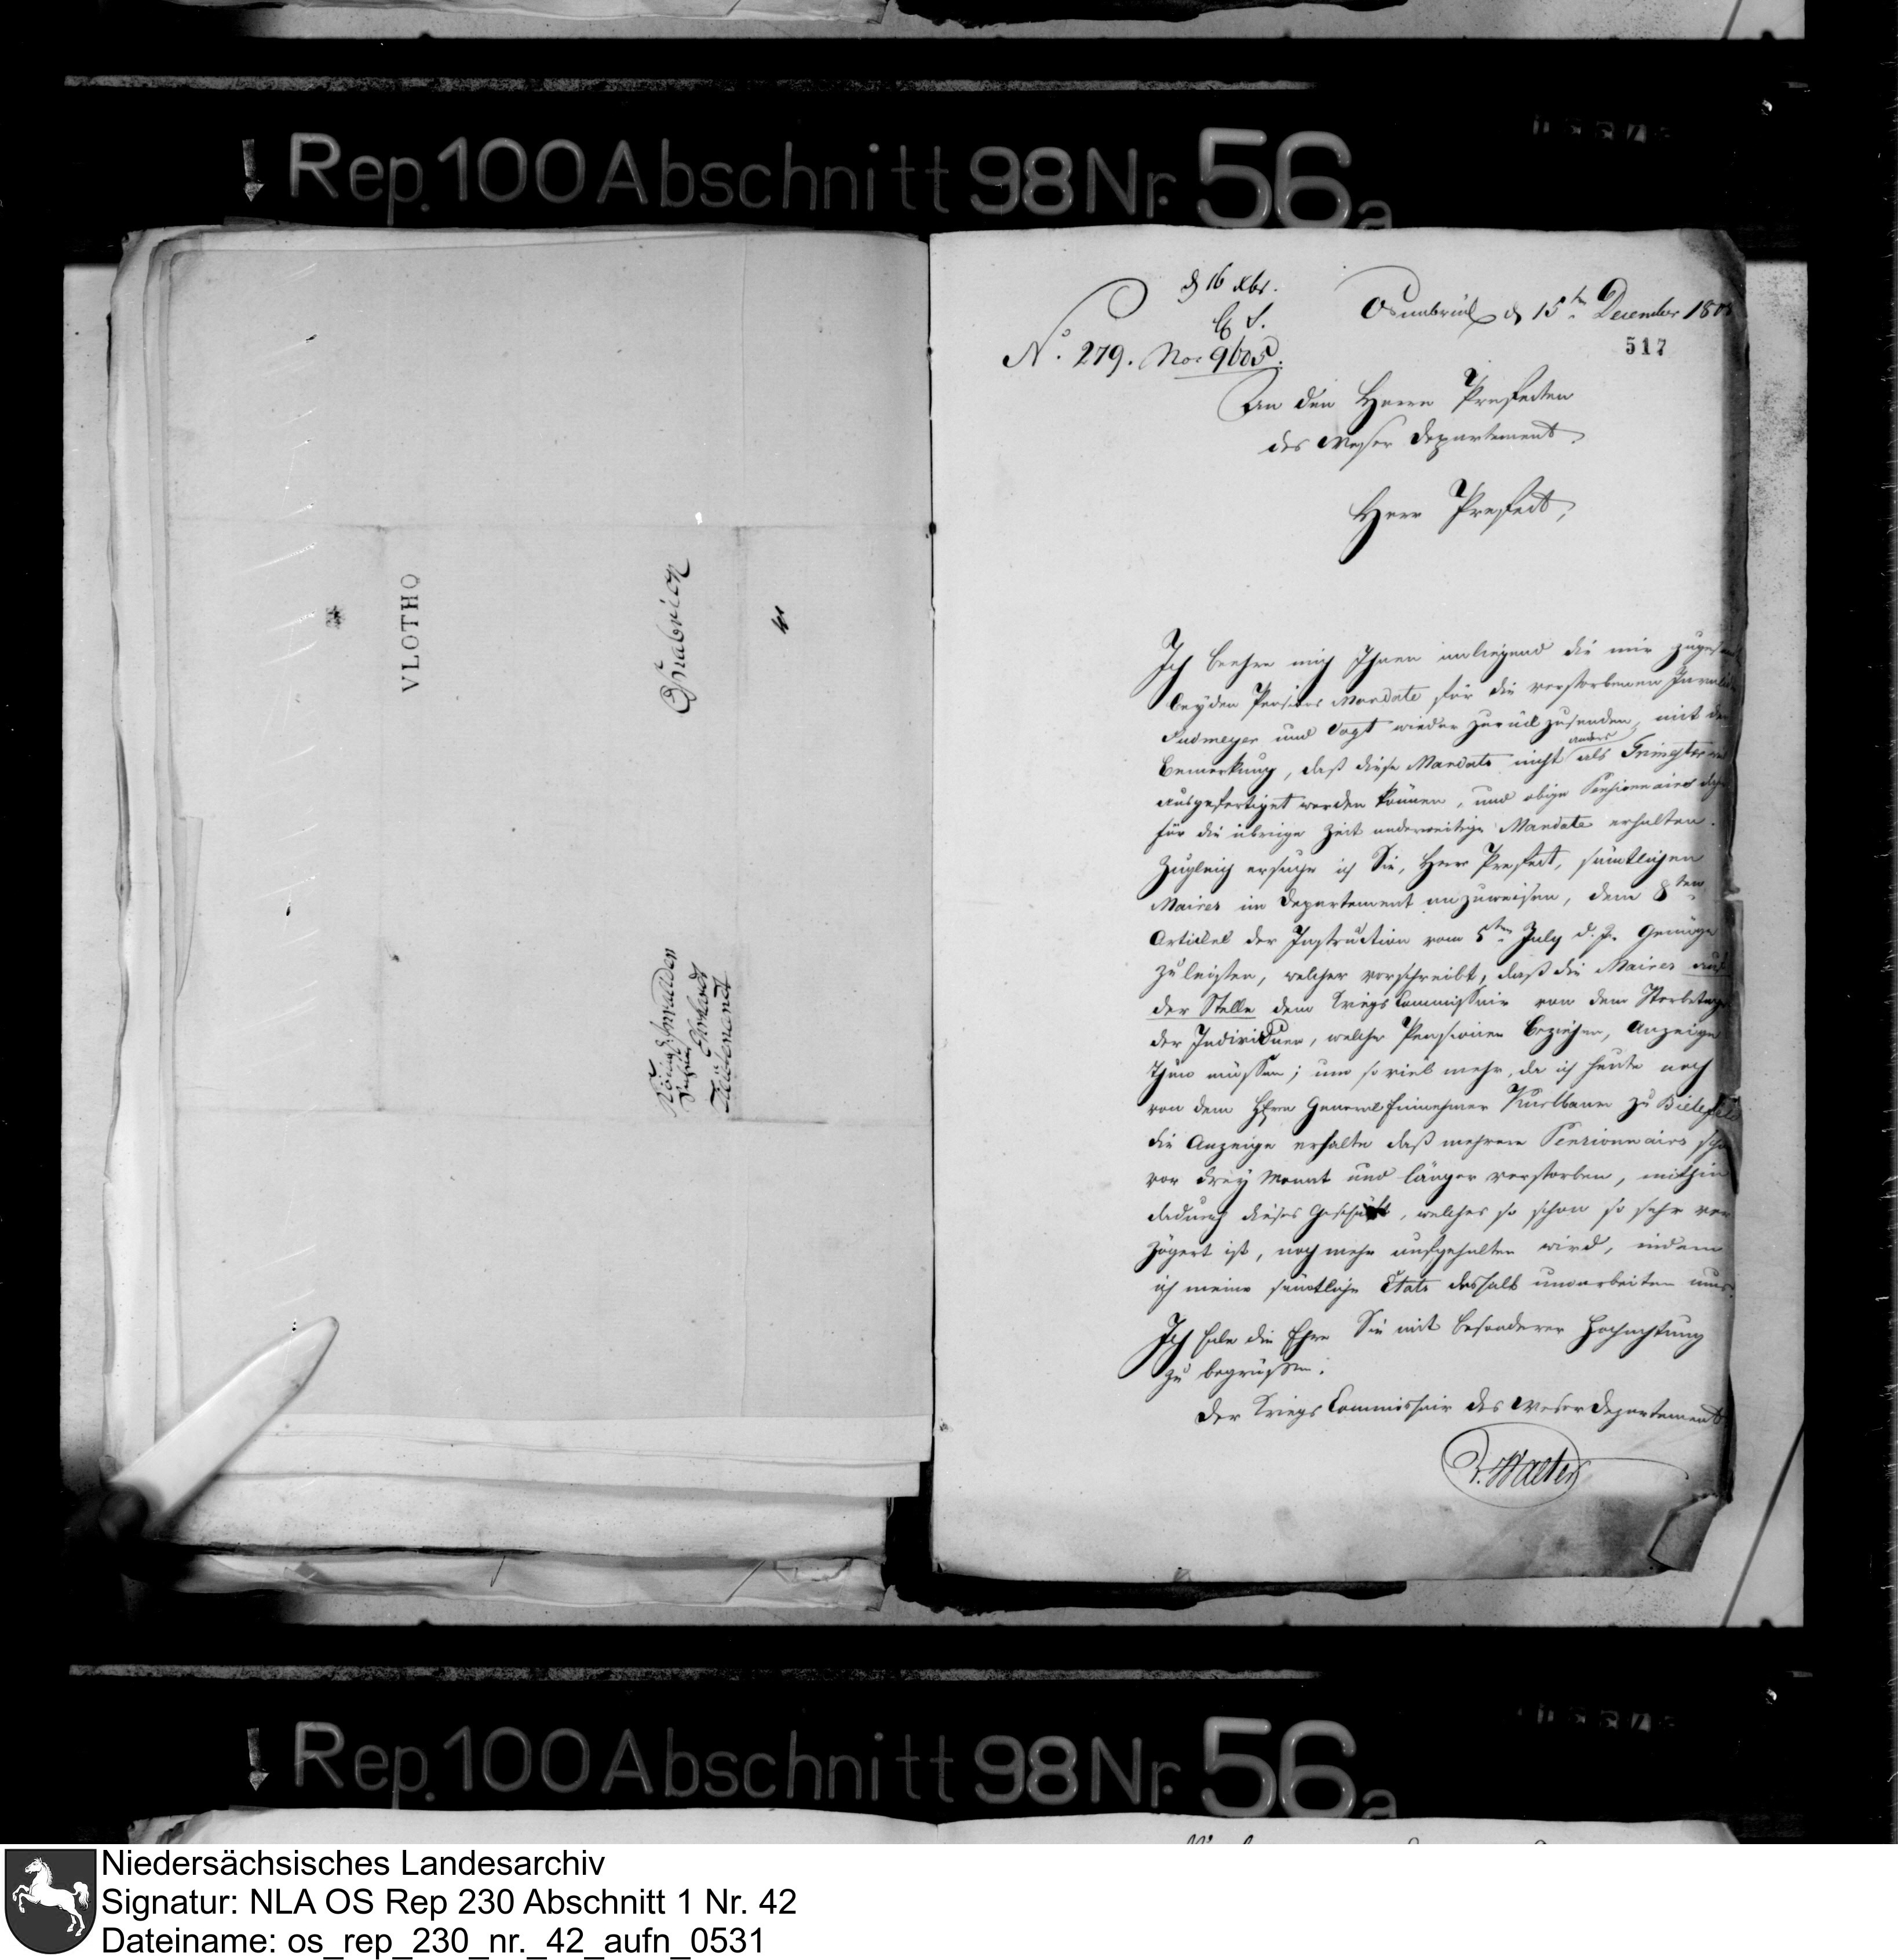 Rep. 100 Abschnitt 98 Nr. 56a
VLOTHO
Osnabrück
4
d 16 xbr.
Osnabrück d 15ten December 180
517
No. 279. Nos 9605.
An den Herrn Prefecten
des Weser Departement.
Herr Prefect,
Ich beehre mich Ihnen anliegend die mir
beyden Pensions Mandate für die verstorbenen
und Vogt wieder zurück zusenden, mit
Bemerkung, daß diese Mandate nicht anders als
ausgefertiget werden können, und obige Pensionnairs
für die übrige Zeit anderweitige Mandate erhalten.
Zugleich ersuche ich Sie, Herr Prefect, sämtlichen
Maires im Departement anzuweisen, dem 8ten
Artickel der Instruction vom 5ten July d. J. Genüge
zu leisten, welcher vorschreibt, daß die Maires auf
der Stelle dem Kriegs Commissair von dem Sterbetage
der Individuen, welche Pensionen beziehen, Anzeige
thun müssen; um so viel mehr, da ich heute noch
von dem Hrn General Einnehmer Kuelbaum zu Bielefeld
die Anzeige erhalte daß mehrere Pensionnairs
vor drey Monat und länger verstorben, mithin
dadurch dieses Geschäft, welches so schon so sehr ver
zögert ist, noch mehr aufgehalten wird, indem
ich meine sämtliche Etats deshalb umarbeiten mus.
Ich habe die Ehre Sie mit besonderer Hochachtung
zu begrüßen.
Der Kriegs Commissair des Weser Departement
Walter
Rep. 100 Abschnitt 98 Nr. 56a
Niedersächsisches Landesarchiv
Signatur: NLA OS Rep 230 Abschnitt 1 Nr. 42
Dateiname: os_rep_230_nr._42_aufn_0531